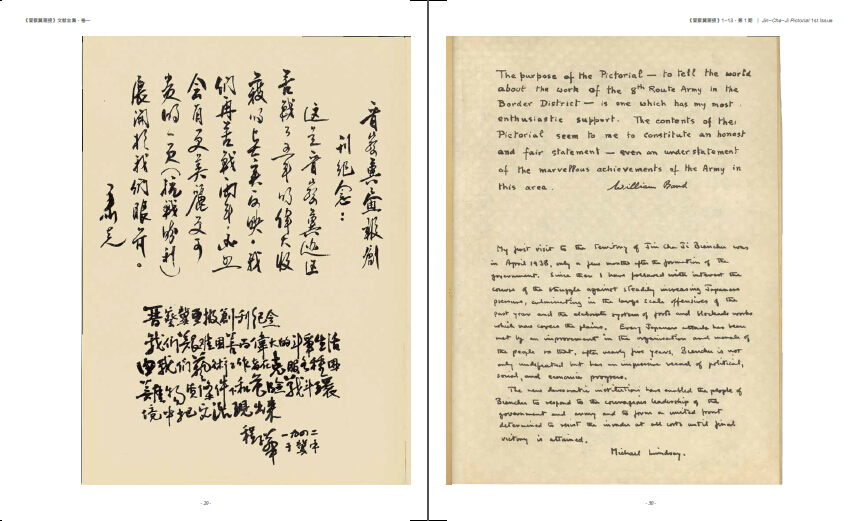 《晋察冀画报》文献全集·卷一
晋察冀画報創
刊纪念：
这是晋察冀边区
苦战了五年的伟大收
获的真美反映。我
们再苦战两年，必
会有更美麗更可
贵的一頁（抗战勝利）
展開於我们眼前。
萧克
晋察冀画报創刊纪念
我们艰难困苦而偉大的斗争生活
由我们艺术工作者在克服種困
難物质條件下和危险战斗環
境中把它活現出来
程子華
一九四二
于冀中
- 29 -
《晋察冀画报》1-13·第1期 | Jin-Cha-Ji Pictorial 1st Issue
The purpose of the Pictorial — to tell the world
about the work of the 8th Route Army in the
Border District — is one which has my most
enthusiastic support. The contents of the
Pictorial seem to me to constitute an honest
and fair statement — even an understatement
of the marvellous achievements of the Army in
this area. William Band
My first visit to the territory of Jin Cha Ji Bianchu was
in April 1938, only a few months after the formation of the
government. Since then I have followed with interest the
course of the struggle against steadily increasing Japanese
pressure, culminating in the large scale offensives of the
past year and the elaborate system of forts and blockade works
which now covers the plains. Every Japanese attack has been
met by an improvement in the organisation and morale of
the people so that, after nearly five years, Bianchu is not
only undefeated but has an impressive record of political,
social, and economic progress.
The new democratic institutions have enabled the people of
Bianchu to respond to the courageous leadership of the
government and army and to form a united front
determined to resist the invader at all costs until final
victory is attained.
Michael Lindsay.
- 30 -